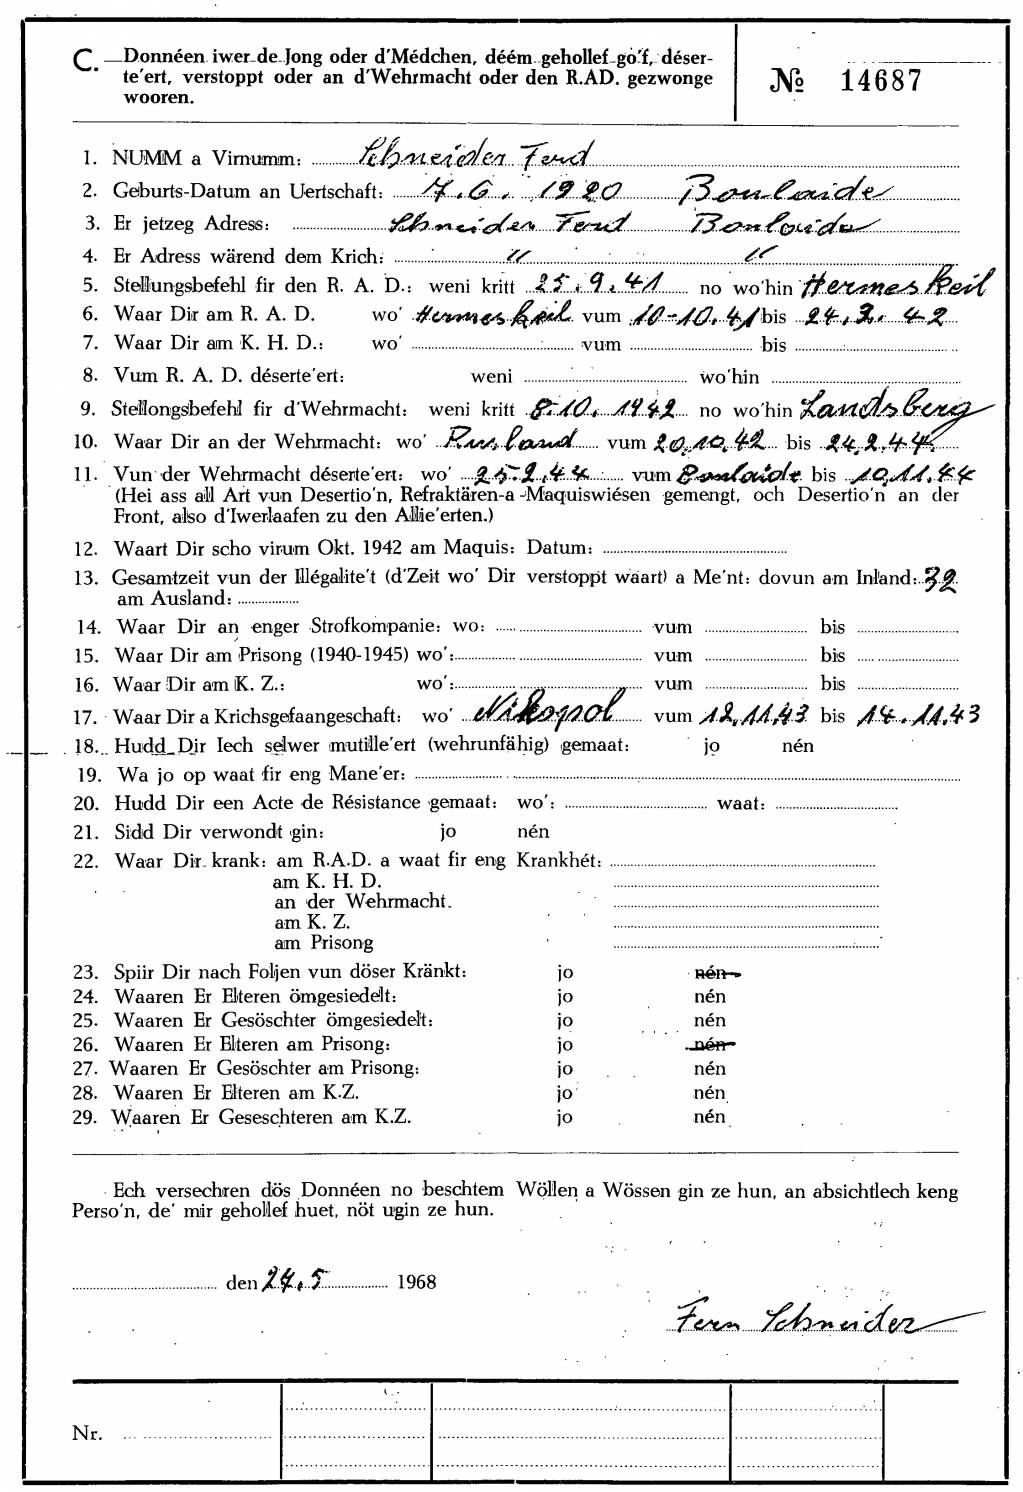 C. Donnéen iwer de Jong oder d'Médchen, déém gehollef go'f, déser-
te'ert, verstoppt oder an d'Wehrmacht oder den R.AD. gezwonge
wooren.
№ 14687
1. NUMM a Virnumm: Schneider Ferd
2. Geburts-Datum an Uertschaft: 7.6. 1920 Boulaide
3. Er jetzeg Adress: Schneider Ferd Boulaide
4. Er Adress wärend dem Krich: " "
5. Stellungsbefehl fir den R. A. D.: weni kritt 25.9.41 no wo'hin Hermeskeil
6. Waar Dir am R. A. D. wo' Hermeskeil vum 10-10.41 bis 24.2.42
7. Waar Dir am K. H. D.: wo' vum bis
8. Vum R. A. D. déserte'ert: weni wo'hin
9. Stellongsbefehl fir d'Wehrmacht: weni kritt 8.10.1942 no wo'hin Landsberg
10. Waar Dir an der Wehrmacht: wo' Rusland vum 20.10.42 bis 24.2.44.
11. Vun der Wehrmacht déserte'ert: wo' 25.2.44 vum Boulaide bis 10.11.44
(Hei ass all Art vun Desertio'n, Refraktären-a -Maquiswiésen gemengt, och Desertio'n an der
Front, also d'Iwerlaafen zu den Allie'erten.)
12. Waart Dir scho virum Okt. 1942 am Maquis: Datum:
13. Gesamtzeit vun der Illégalite't (d'Zeit wo' Dir verstoppt waart) a Me'nt: dovun am Inland: 32
am Ausland:
14. Waar Dir an enger Strofkompanie: wo: vum bis
15. Waar Dir am Prisong (1940-1945) wo': vum bis
16. Waar Dir am K. Z.: wo': vum bis
17. Waar Dir a Krichsgefaangeschaft: wo' Nikopol vum 12.11.43 bis 14.11.43
18. Hudd Dir Iech selwer mutille'ert (wehrunfähig) gemaat: jo nén
19. Wa jo op waat fir eng Mane'er:
20. Hudd Dir een Acte de Résistance gemaat: wo': waat:
21. Sidd Dir verwondt gin: jo nén
22. Waar Dir krank: am R.A.D. a waat fir eng Krankhét:
am K. H. D.
an der Wehrmacht.
am K. Z.
am Prisong
23. Spiir Dir nach Foljen vun döser Kränkt: jo nén
24. Waaren Er Elteren ömgesiedelt: jo nén
25. Waaren Er Gesöschter ömgesiedelt: jo nén
26. Waaren Er Elteren am Prisong: jo nén
27. Waaren Er Gesöschter am Prisong: jo nén
28. Waaren Er Elteren am K.Z. jo nén
29. Waaren Er Geseschteren am K.Z. jo nén
Ech versechren dös Donnéen no beschtem Wöllen a Wössen gin ze hun, an absichtlech keng
Perso'n, de' mir gehollef huet, nöt ugin ze hun.
den 24.5 1968
Fern Schneider
Nr.